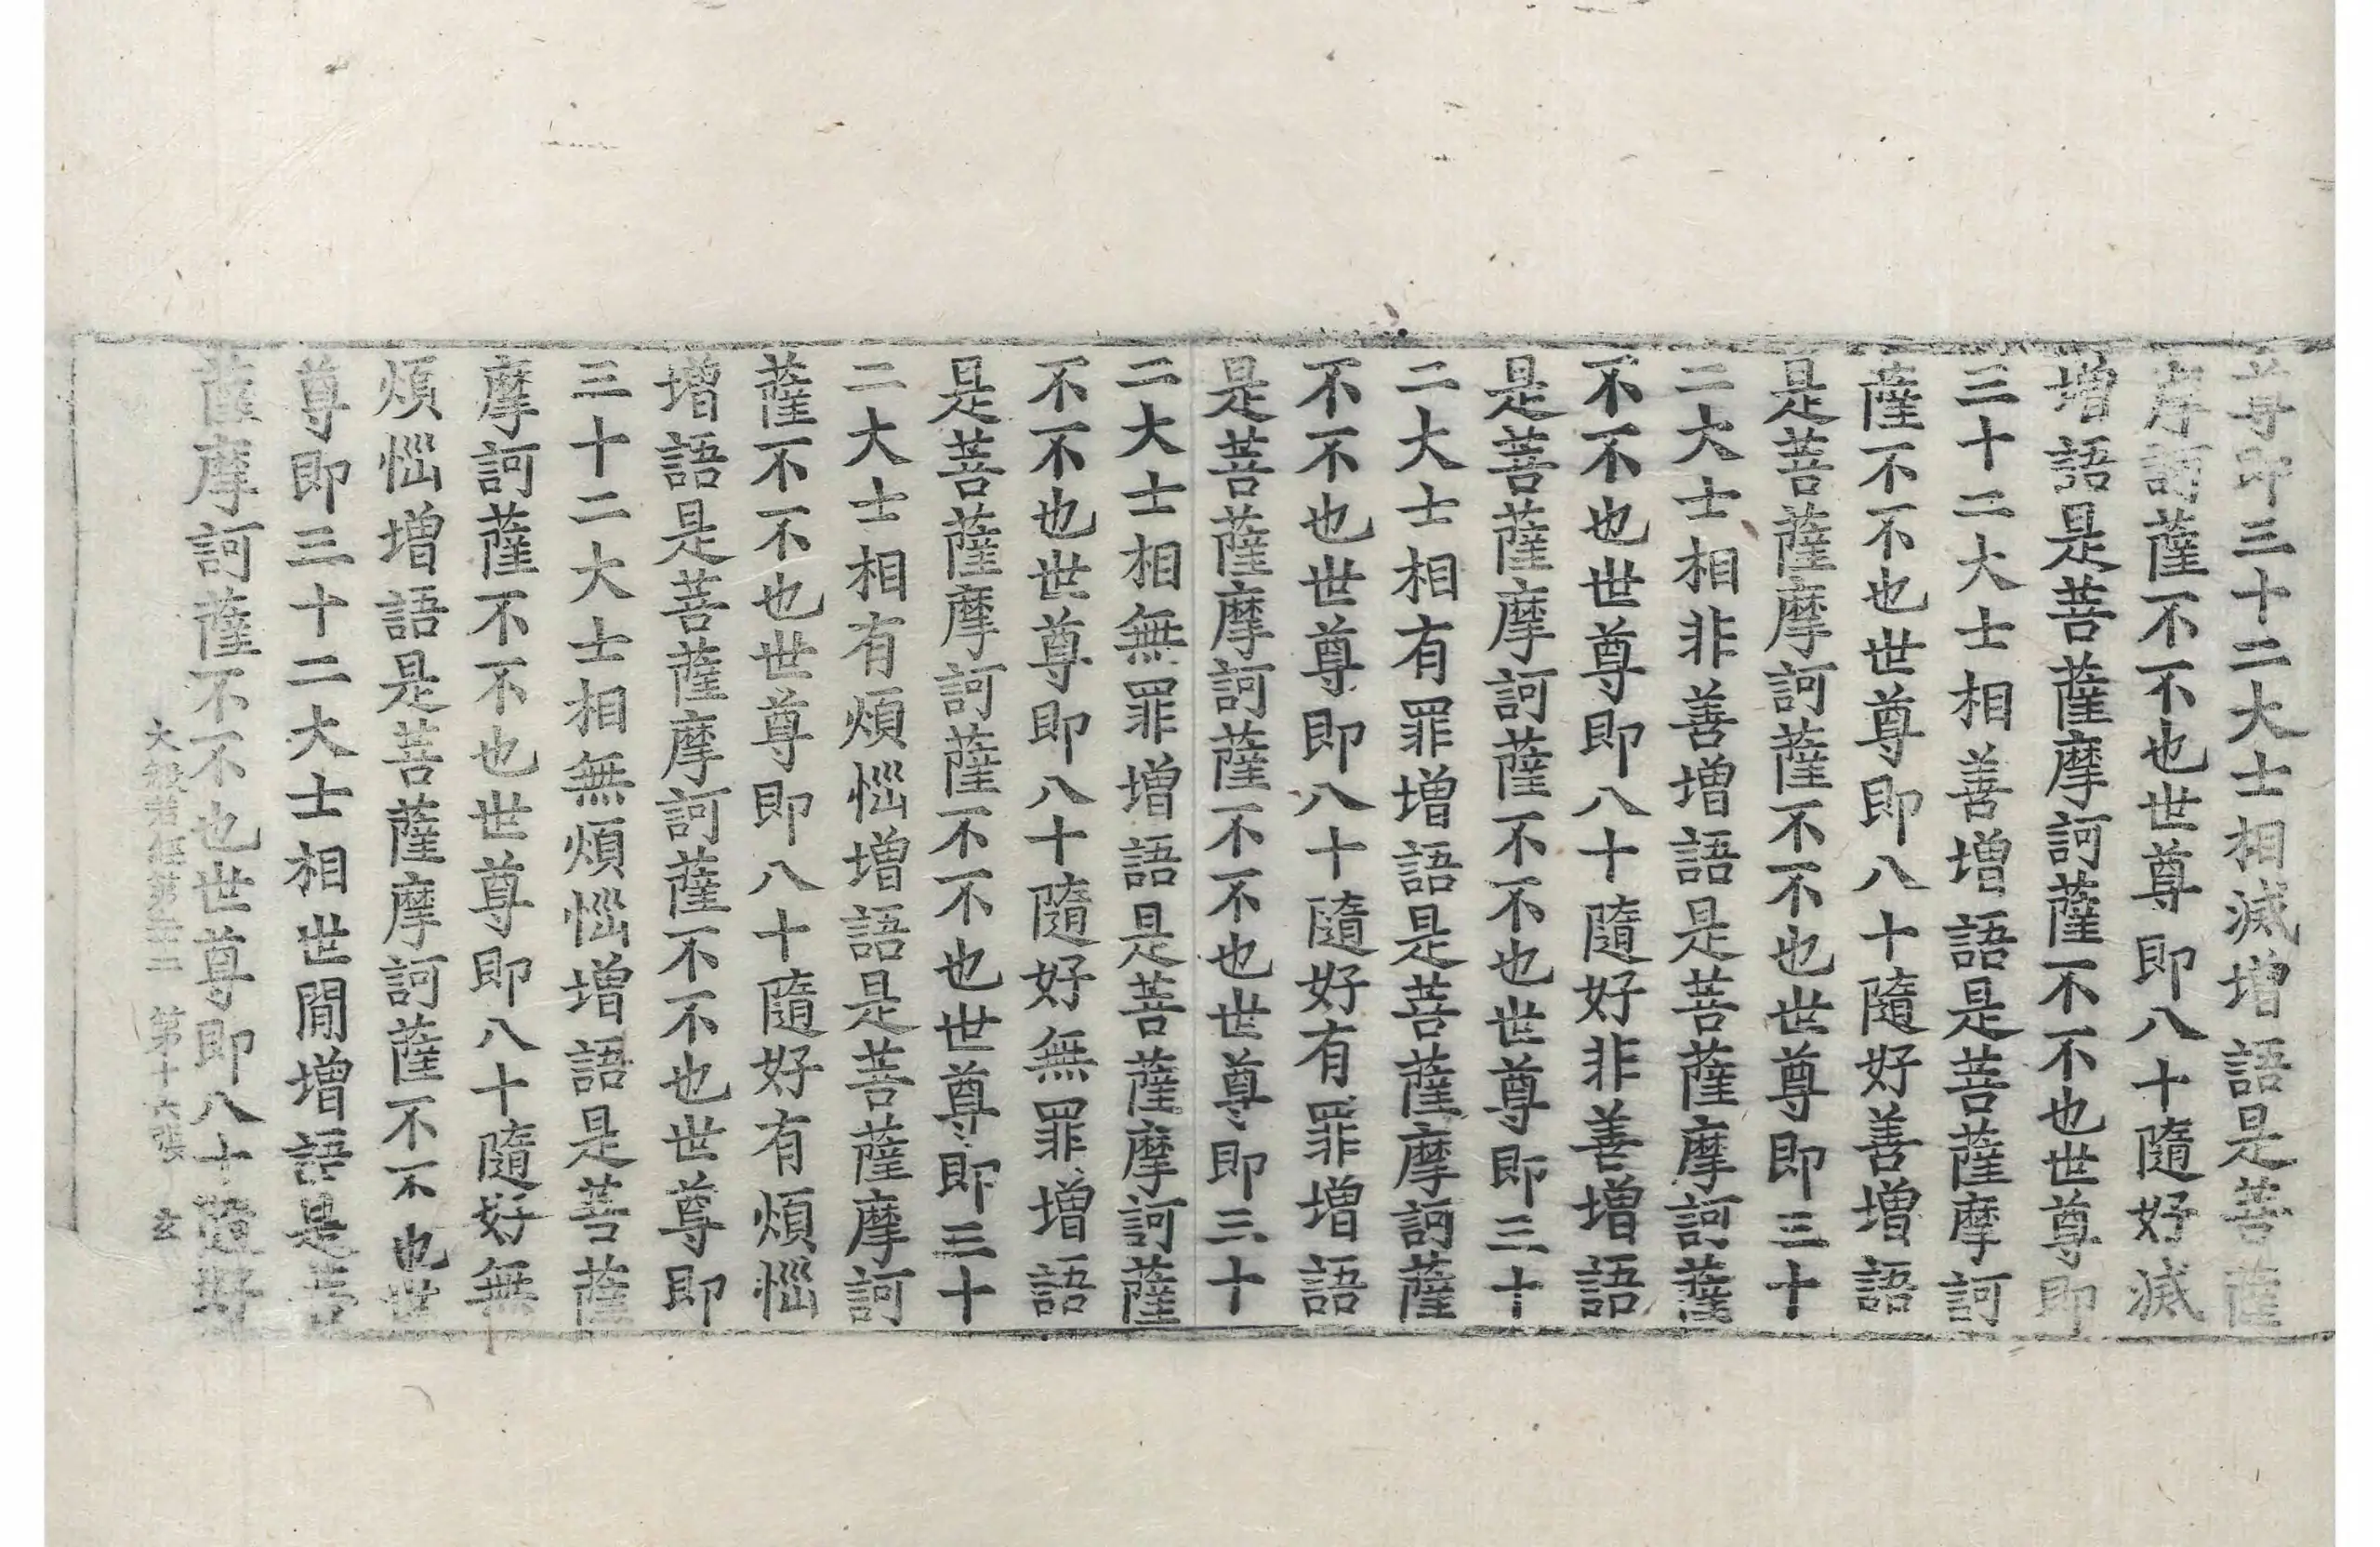 尊即三十二大士相滅增語是菩薩
摩訶薩不不也世尊即八十隨好滅
增語是菩薩摩訶薩不不也世尊即
三十二大士相善增語是菩薩摩訶
薩不不也世尊即八十隨好善增語
是菩薩摩訶薩不不也世尊即三十
二大士相非善增語是菩薩摩訶薩
不不也世尊即八十隨好非善增語
是菩薩摩訶薩不不也世尊即三十
二大士相有罪增語是菩薩摩訶薩
不不也世尊即八十隨好有罪增語
是菩薩摩訶薩不不也世尊即三十
二大士相無罪增語是菩薩摩訶薩
不不也世尊即八十隨好無罪增語
是菩薩摩訶薩不不也世尊即三十
二大士相有煩惱增語是菩薩摩訶
薩不不也世尊即八十隨好有煩惱
增語是菩薩摩訶薩不不也世尊即
三十二大士相無煩惱增語是菩薩
摩訶薩不不也世尊即八十隨好無
煩惱增語是菩薩摩訶薩不不也世
尊即三十二大士相世間增語是菩
薩摩訶薩不不也世尊即八十隨好
大般若經第 二 第十六張 玄